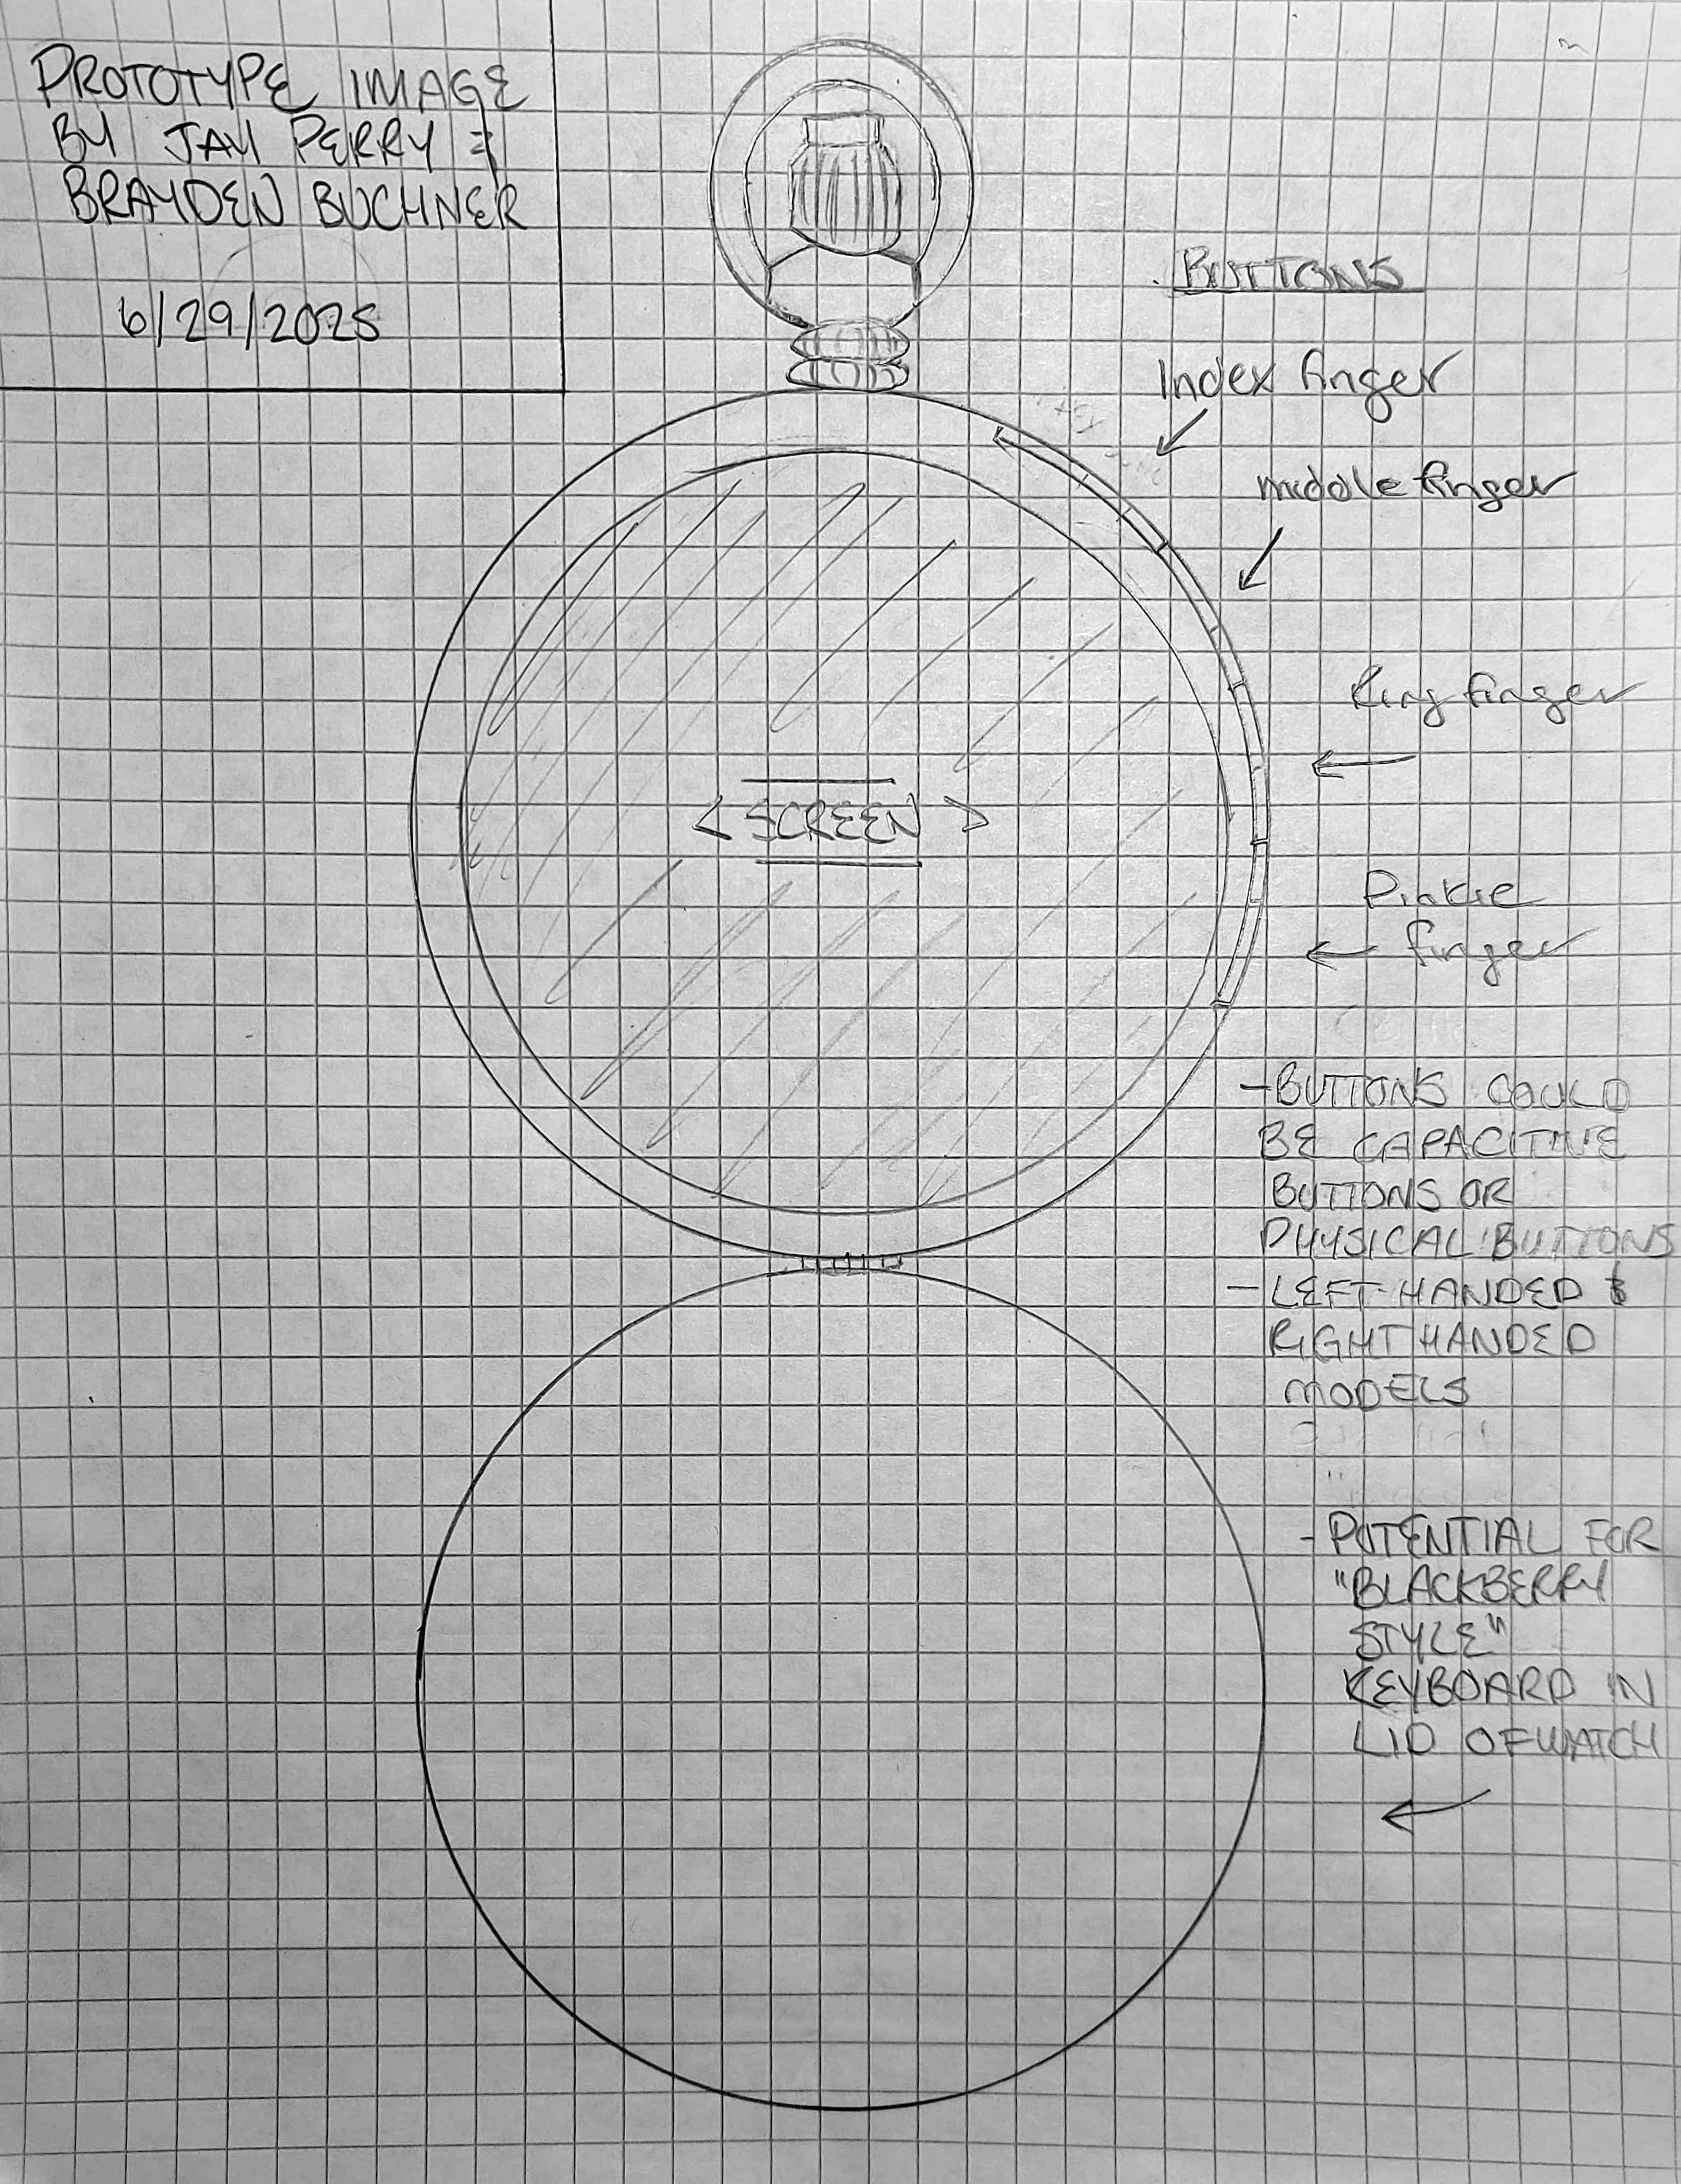 PROTOTYPE IMAGE
BY JAY PERRY &
BRAYDEN BUCHNER
6/29/2025
BUTTONS
Index finger
middle finger
Ring finger
< SCREEN >
Pinkie
finger
- BUTTONS COULD
BE CAPACITIVE
BUTTONS OR
PHYSICAL BUTTONS
- LEFT-HANDED &
RIGHT HANDED
MODELS
- POTENTIAL FOR
"BLACKBERRY
STYLE"
KEYBOARD IN
LID OF WATCH